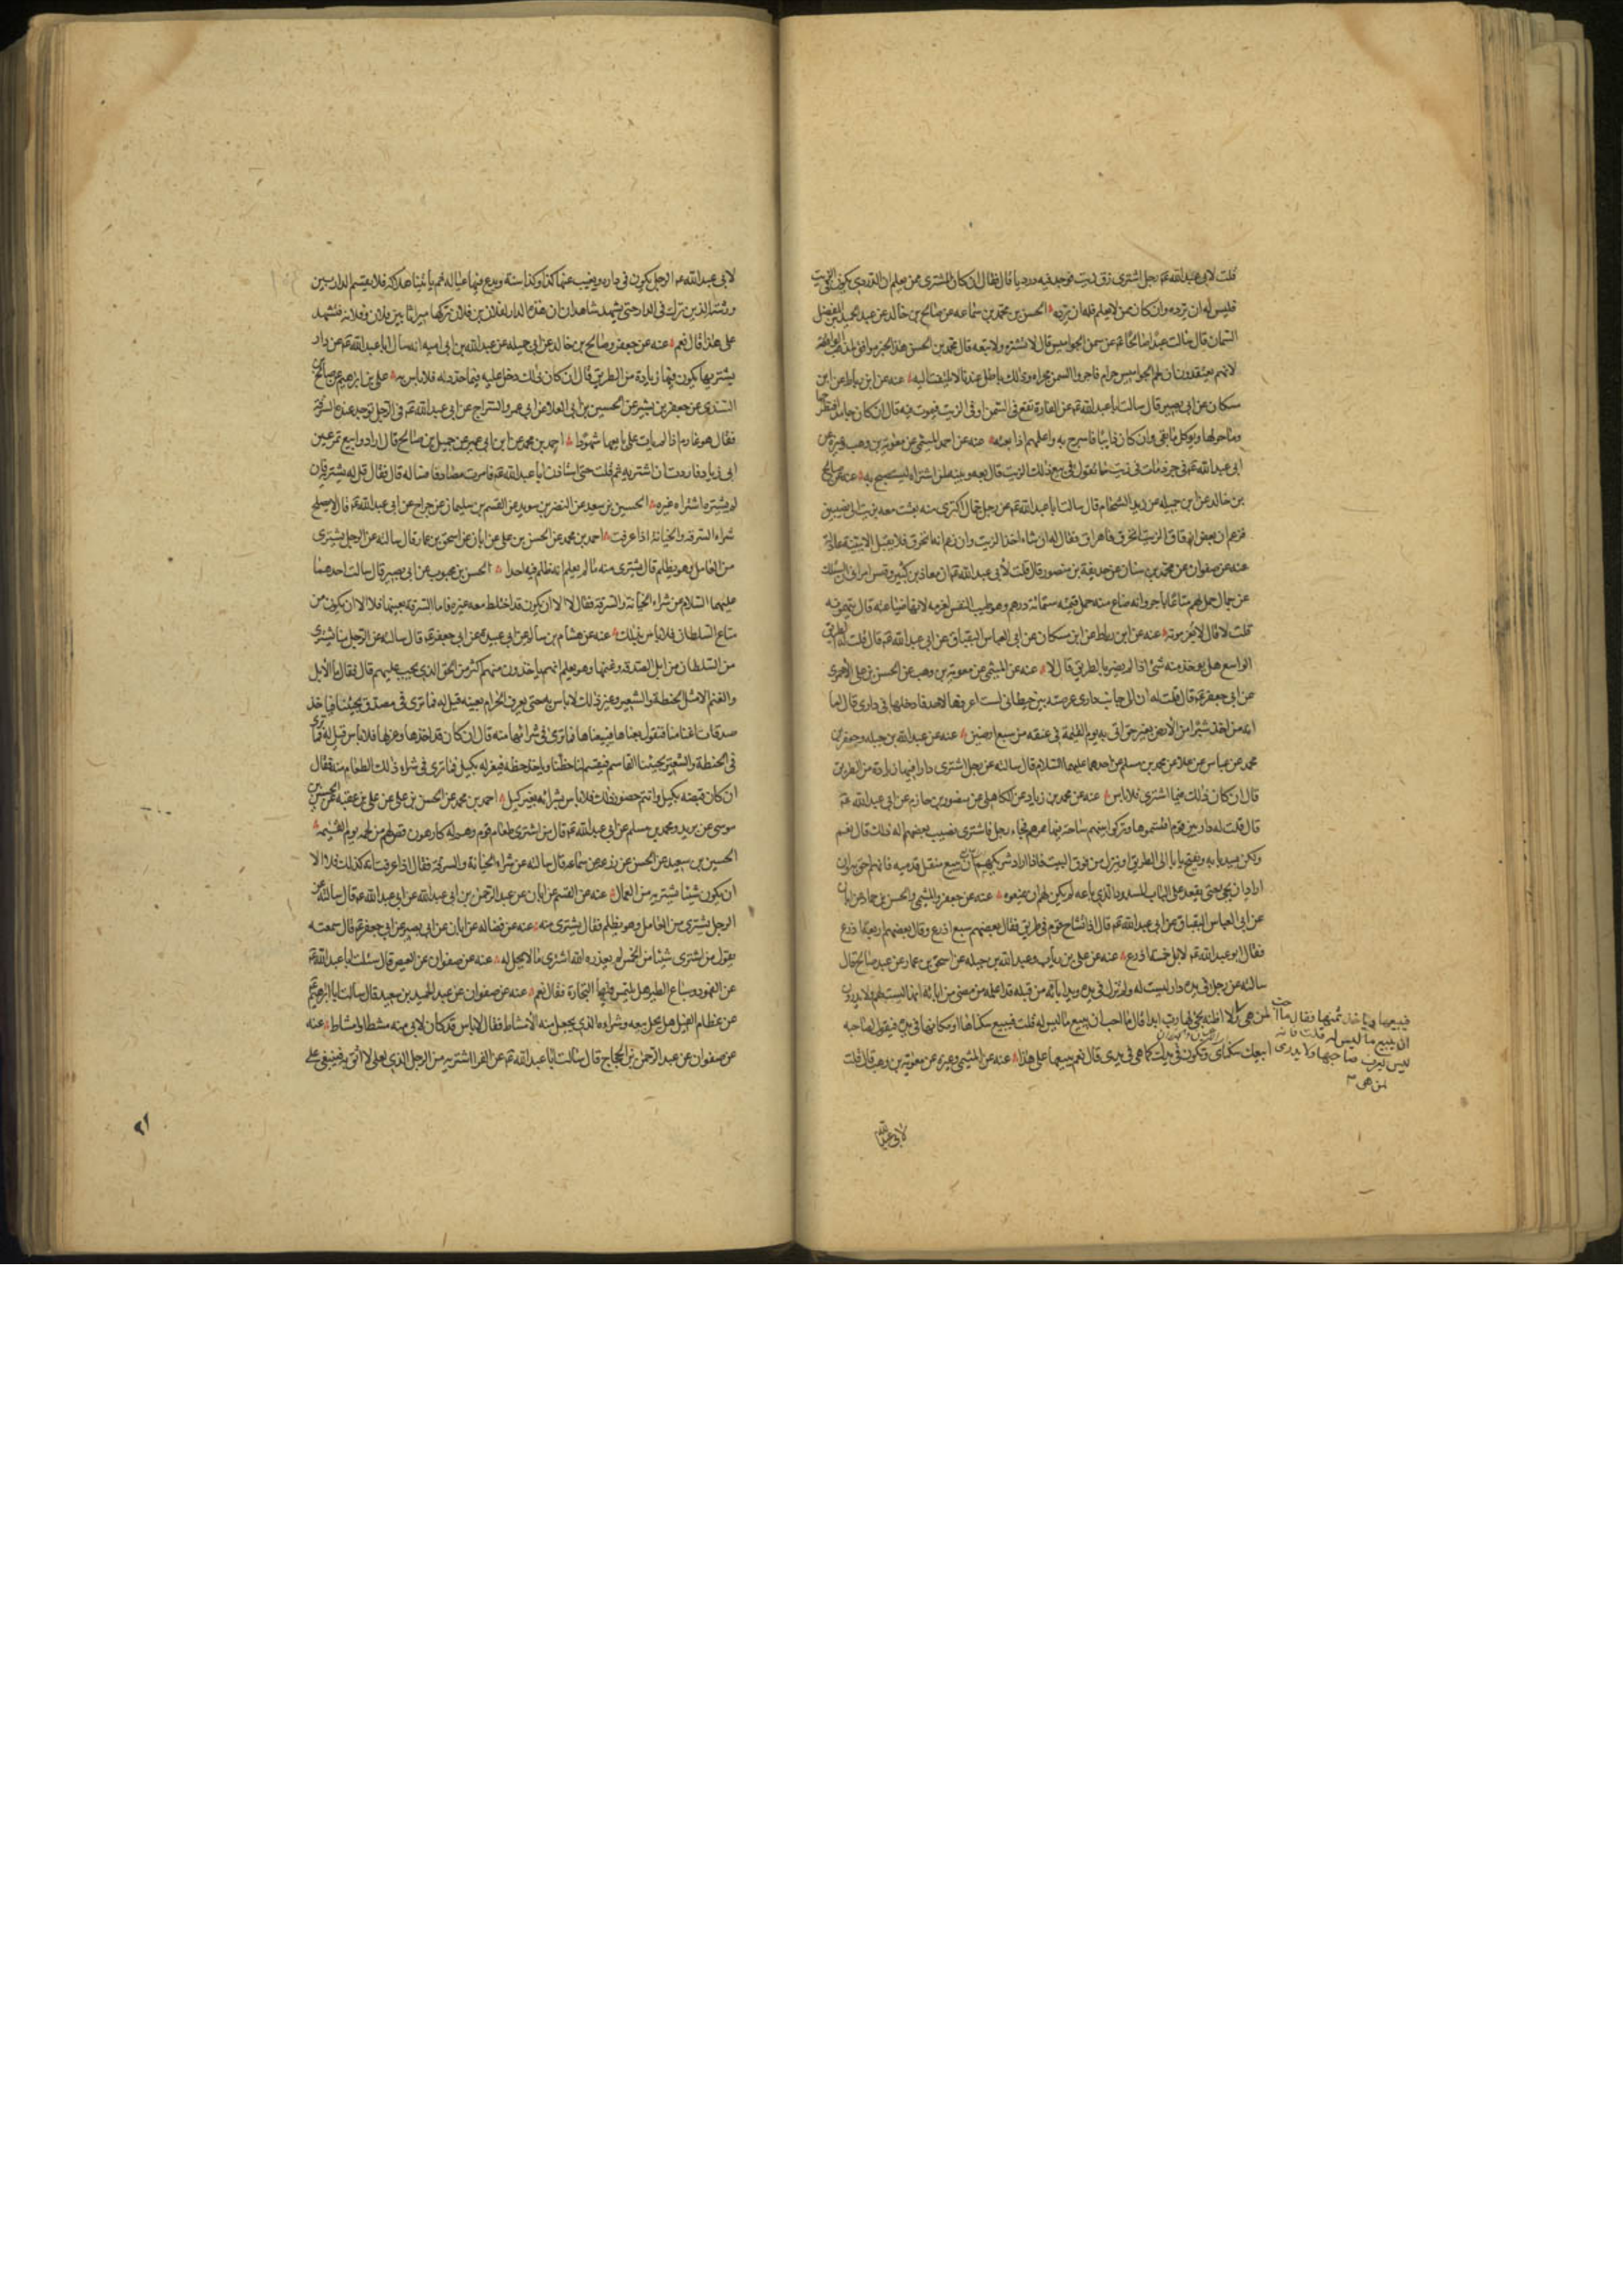 قلت لابي عبدالله عم رجل اشترى زق زيت فوجد فيه درديا قال فقال ان كان المشترى ممن يعلم ان الدردي يكون في الزيت
فليس له ان يرده وان كان ممن لا يعلم فله ان يرده الحسن بن محمد بن سماعه عن صالح بن خالد عن عبد الحميد بن المفضل
السمان قال سالت عبدا صالحا عم عن سمن الجواميس قال لا تشتره ولا تبعه قال محمد بن الحسن هذا الخبر موافق لمذهب الواقفه
لانهم يعتقدون ان لحم الجواميس حرام فاجروا السمن مجراه وذلك باطل عندنا لا يلتفت اليه عنه عن ابن رباط عن ابن
مسكان عن ابي بصير قال سالت ابا عبدالله عم عن الفارة تقع في السمن او في الزيت فيموت فيه قال ان كان جامدا فيطرحها
وما حولها ويوكل ما بقى وان كان ذايبا فاسرج به واعلمهم اذا بعته عنه عن احمد الميثمي عن معوية بن وهب وغيره عن
ابي عبدالله عم في جرذ مات في زيت ما تقول في بيع ذلك الزيت قال بعه وبينه لمن اشتراه ليستصبح به عنه عن صالح
بن خالد عن ابن جبله عن زيد الشحام قال سالت ابا عبدالله عم عن رجل جمال اكترى منه بعث معه بزيت الى نصيبين
فزعم ان بعض ازقاق الزيت انخرق فاهراق فقال له ان شاء اخذ الزيت وان زعم انه انخرق فلا يقبل الا ببينة عادلة
عنه عن صفوان عن محمد بن سنان عن حذيفة بن منصور قال قلت لابي عبدالله عم ان معاذ بن كثير وقيس امراني ان اسئلك
عن جمال حمل لهم متاعا باجر وانه ضاع منه حمل قيمته ستمائة درهم وهو طيب النفس لغرمه لانها ضياعته قال يتهمونه
قلت لا قال لا يغرمونه عنه عن ابن رباط عن ابن مسكان عن ابي العباس البقباق عن ابي عبدالله عم قال قلت له الطريق
الواسع هل يؤخذ منه شئ اذا لم يضر بالطريق قال لا عنه عن الميثمي عن معوية بن وهب عن الحسن بن علي الاحمرى
عن ابي جعفر عم قال قلت له ان الى جانب داري عرصة بين حيطاني لست اعرفها لاحد فادخلها في داري قال اما
انه من اخذ شبرا من الارض بغير حق اتى به يوم القيمة في عنقه من سبع ارضين عنه عن عبدالله بن جبله وجعفر بن
محمد عن عباس عن علا عن محمد بن مسلم عن احدهما عليهما السلام قال سالته عن رجل اشترى دارا فيها زيادة من الطريق
قال ان كان ذلك فيما اشترى فلا باس عنه عن محمد بن زياد عن الكاهلي عن منصور بن حازم عن ابي عبدالله عم
قال قلت له دار بين قوم اقتسموها وتركوا بينهم ساحة فيها ممرهم فجاء رجل فاشترى نصيب بعضهم اله ذلك قال نعم
ولكن يسد بابه ويفتح بابا الى الطريق او ينزل من فوق البيت فاذا اراد شريكهم ان يبيع منقل قدميه فانهم احق به وان
اراد ان يجئ حتى يقعد على الباب المسدود الذي باعه لم يكن لهم ان يمنعوه عنه عن جعفر والميثمي والحسن بن حماد عن ابان
عن ابي العباس البقباق عن ابي عبدالله عم قال اذا تشاح قوم في طريق فقال بعضهم سبع اذرع وقال بعضهم اربعة اذرع
فقال ابو عبدالله عم لا بل خمسة اذرع عنه عن علي بن رياب وعبدالله بن جبله عن اسحق بن عمار عن عبد صالح قال
سالته عن رجل في يده دار ليست له ولم تزل في يده ويد ابائه من قبله قد اعلمه من مضى من ابائه انها ليست لهم ولا يدرون
لمن هي فيبيعها وياخذ ثمنها فقال ما احب ان يبيع ما ليس له قلت فانه ليس يعرف صاحبها ولا يدرى لمن هي
ولا اظنه يجئ لها رب ابدا قال ما احب ان يبيع ما ليس له قلت فيبيع سكناها او مكانها في يده فيقول لصاحبه
ابيعك سكناى وتكون في يدك كما هي في يدي قال نعم يبيعها على هذا عنه عن الميثمي وغيره عن معوية بن وهب قال قلت
لابي عبدالله
لابي عبدالله عم الرجل يكون في داره ويغيب عنها كذا وكذا سنة ويدع فيها عياله ثم يأتينا هلاكه فلا نقسم الدار بين
ورثته الذين ترك في الدار حتى يشهد شاهدان ان هذه الدار لفلان بن فلان تركها ميراثا بين فلان وفلانه فنشهد
على هذا قال نعم عنه عن جعفر وصالح بن خالد عن ابي جميله عن عبدالله بن ابي اميه انه سال ابا عبدالله عم عن دار
يشتريها يكون فيها زيادة من الطريق قال ان كان ذلك دخل عليه فيما حد له فلا باس به علي بن ابرهيم عن صالح بن
السندى عن جعفر بن بشير عن الحسين بن ابي العلا عن ابي عمر والسراج عن ابي عبدالله عم في الرجل توجد عنده السرقة
فقال هو غارم اذا لم يات على بايعها شهودا احمد بن محمد عن ابن ابي عمير عن جميل بن صالح قال ارادوا بيع تمر عين
ابي زياد فاردت ان اشتريه ثم قلت حتى استاذن ابا عبدالله عم فامرت مصادفا فساله قال فقال قل له يشتره فان
لم يشتره اشتراه غيره الحسين بن سعيد عن النضر بن سويد عن القسم بن سليمان عن جراح عن ابي عبدالله عم قال لا يصلح
شراء السرقة والخيانة اذا عرفت احمد بن محمد عن الحسن بن علي عن ابان عن اسحق بن عمار قال سالته عن الرجل يشترى
من العامل وهو يظلم قال يشترى منه ما لم يعلم انه ظلم فيه احدا الحسن بن محبوب عن ابي بصير قال سالت احدهما
عليهما السلام عن شراء الخيانة والسرقة فقال لا الا ان يكون قد اختلط معه غيره فاما السرقة بعينها فلا الا ان يكون من
متاع السلطان فلا باس بذلك عنه عن هشام بن سالم عن ابي عبيدة عن ابي جعفر عم قال سالته عن الرجل منا يشترى
من السلطان من ابل الصدقة وغنمها وهو يعلم انهم ياخذون منهم اكثر من الحق الذي يجب عليهم قال فقال ما الابل
والغنم الا مثل الحنطة والشعير وغير ذلك لا باس به حتى يعرف الحرام بعينه قيل له فما ترى في مصدق يجيئنا فياخذ
صدقات اغنامنا فنقول بعناها فيبيعناها فما ترى في شرائها منه قال ان كان قد اخذها وعزلها فلا باس قيل له فما ترى
في الحنطة والشعير يجيئنا القاسم فيقسم لنا حظنا وياخذ حظه فيعزله بكيل فما ترى في شراء ذلك الطعام منه فقال
ان كان قبضه بكيل وانتم حضور ذلك فلا باس بشرائه بغير كيل احمد بن محمد عن الحسن بن علي عن علي بن عقبة عن الحسين بن
موسى عن بريد ومحمد بن مسلم عن ابي عبدالله عم قال من اشترى طعام قوم وهم له كارهون قص لهم من لحمه يوم القيمة
الحسين بن سعيد عن الحسن عن زرعه عن سماعه قال سالته عن شراء الخيانة والسرقة فقال اذا عرفت انه كذلك فلا الا
ان يكون شيئا تشتريه من العمال عنه عن القسم عن ابان عن عبد الرحمن بن ابي عبدالله عن ابي عبدالله عم قال سالته عن
الرجل يشترى من العامل وهو يظلم فقال يشترى منه عنه عن فضاله عن ابان عن ابي بصير عن ابي جعفر عم قال سمعته
يقول من اشترى شيئا من الخمس لم يعذره الله اشترى ما لا يحل له عنه عن صفوان عن العيص قال سئلت ابا عبدالله عم
عن الفهود وسباع الطير هل يلتمس فيها التجارة فقال نعم عنه عن صفوان عن عبد الحميد بن سعيد قال سالت ابا ابرهيم عم
عن عظام الفيل هل يحل بيعه وشراءه الذي يجعل منه الامشاط فقال لا باس قد كان لابي منه مشط او امشاط عنه
عن صفوان عن عبد الرحمن بن الحجاج قال سالت ابا عبدالله عم عن الفرا اشتريه من الرجل الذي لعلي لا اثق به فيبيعني على